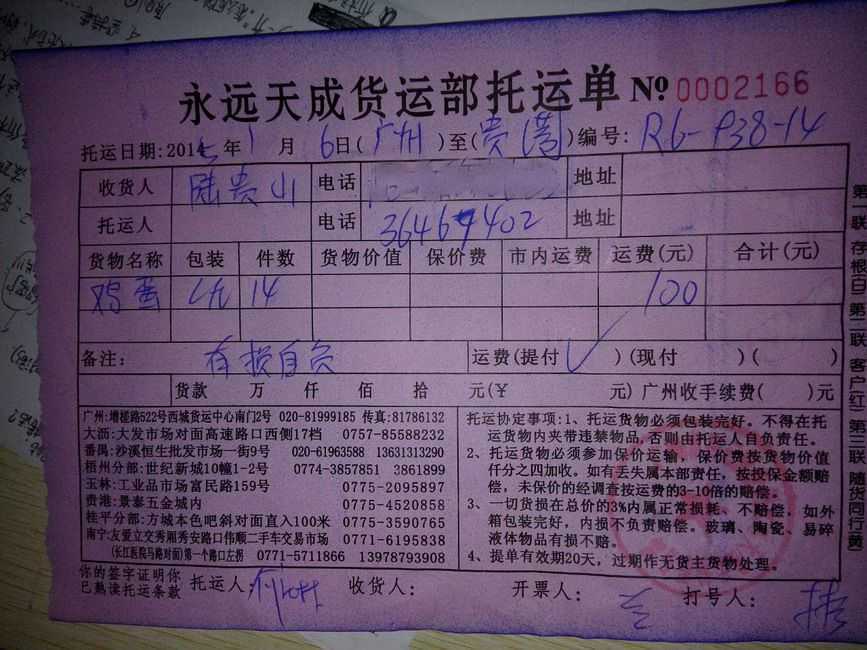 永远天成货运部托运单 № 0002166
托运日期:201 年 1 月 6 日(广州)至(贵港)编号: R6-P38-14
收货人 陆贵山 电话 地址
托运人 电话 36464402 地址
货物名称 包装 件数 货物价值 保价费 市内运费 运费(元) 合计(元)
鸡蛋 14 100
备注: 有损自负 运费(提付 ✓ )(现付 )( )
货款 万 仟 佰 拾 元(¥ 元) 广州收手续费( )
广州:增槎路522号西城货运中心南门2号 020-81999185 传真:81786132
大沥:大发市场对面高速路口西侧17档 0757-85588232
番禺:沙溪恒生批发市场一街9号 020-61963588 13631313290
梧州分部:世纪新城10幢1-2号 0774-3857851 3861899
玉林:工业品市场富民路159号 0775-2095897
贵港:景泰五金城内 0775-4520858
桂平分部:方城本色吧斜对面直入100米 0775-3590765
南宁:友爱立交秀厢秀安路口伟顺二手车交易市场 0771-6195838
(长江医院马路对面)第一个路口左拐 0771-5711866 13978793908
托运协定事项:1、托运货物必须包装完好。不得在托
运货物内夹带违禁物品,否则由托运人自负责任。
2、托运货物必须参加保价运输,保价费按货物价值
仟分之四加收。如有丢失属本部责任,按投保金额赔
偿,未保价的经调查按运费的3-10倍的赔偿。
3、一切货损在总价的3%内属正常损耗、不赔偿,如外
箱包装完好,内损不负责赔偿。玻璃、陶瓷、易碎
液体物品有损不赔。
4、提单有效期20天,过期作无货主货物处理。
你的签字证明你
已熟读托运条款
托运人: 收货人: 开票人: 打号人:
第一联 存根(白) 第二联 客户(红) 第三联 随货同行(黄)